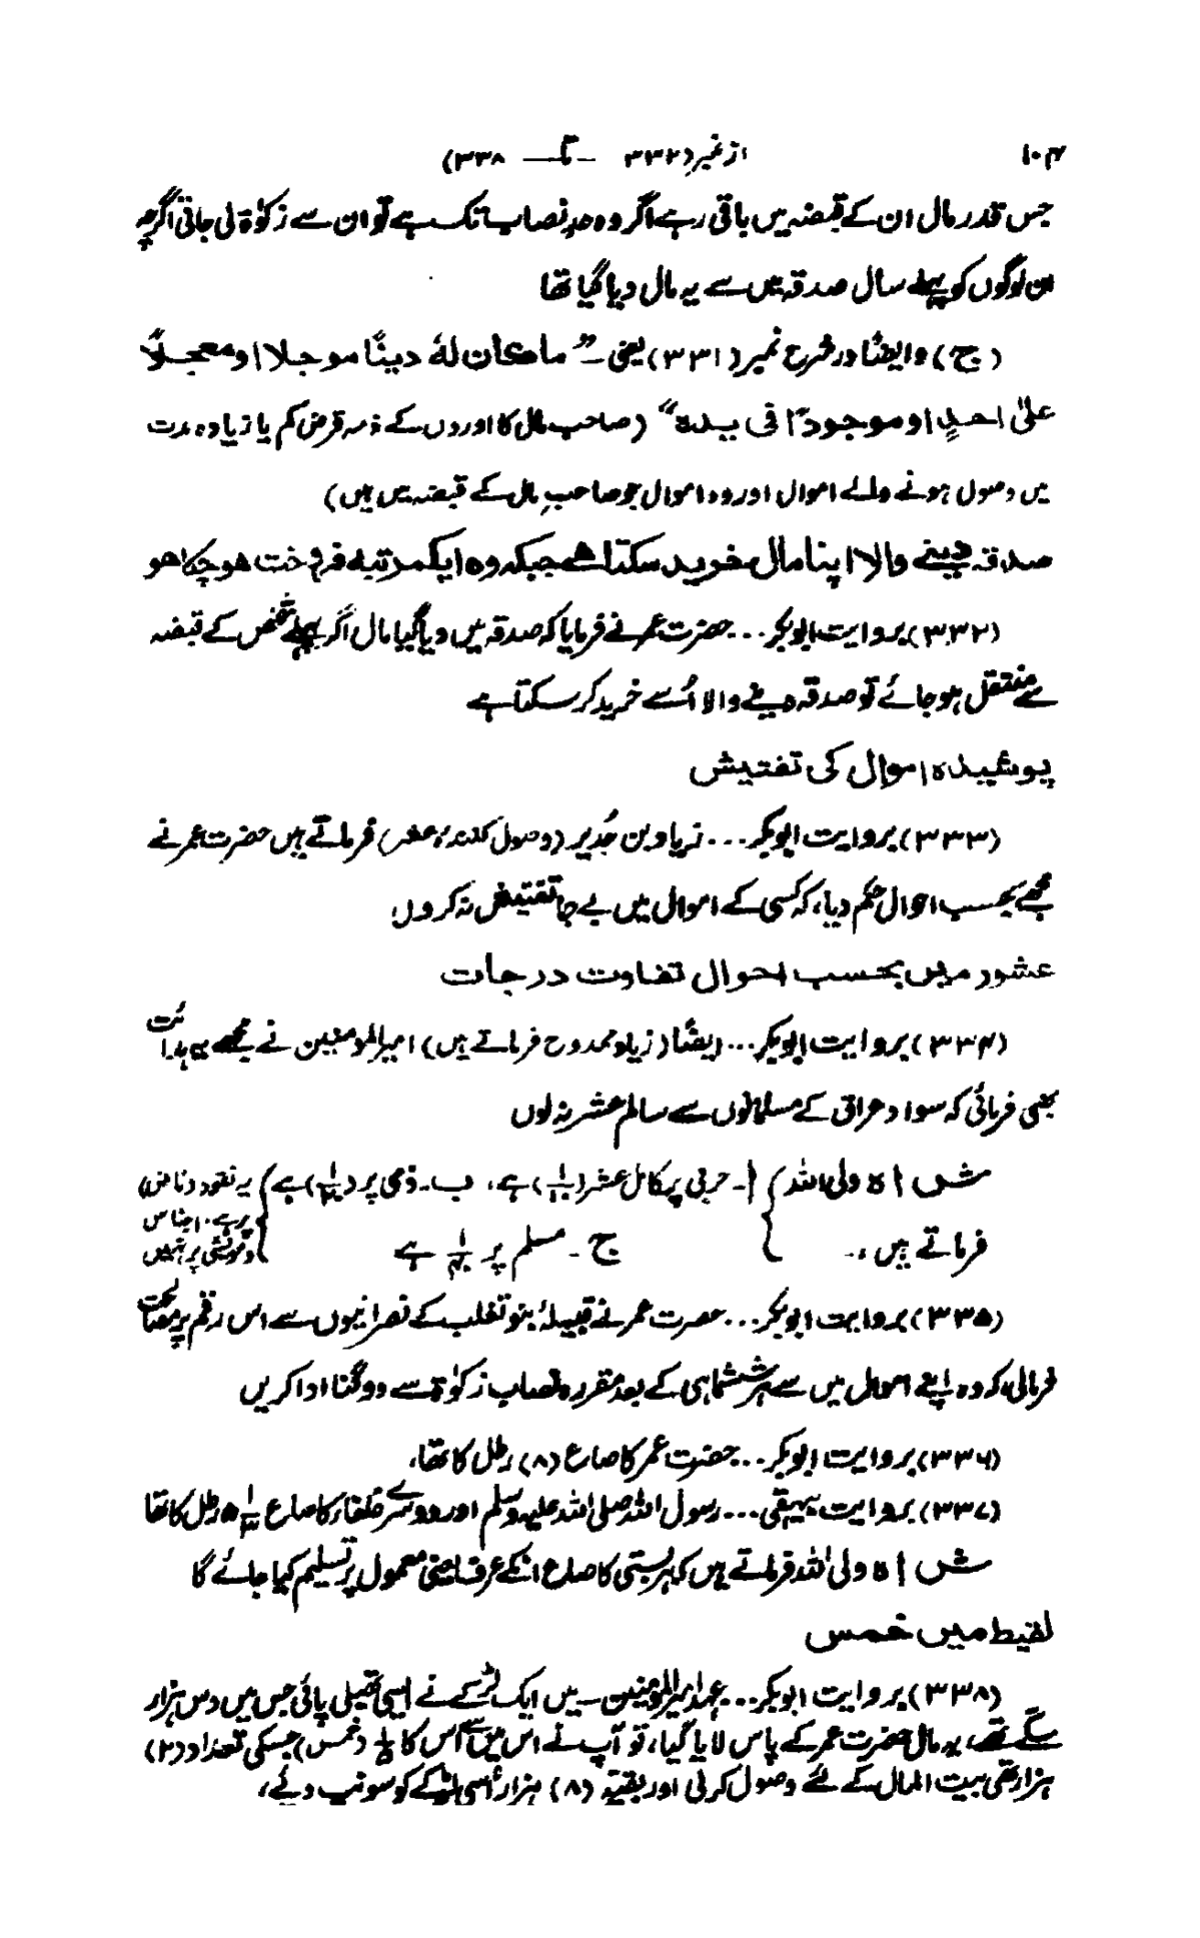 ۱۰۴ از نمبر(۳۳۲ — تا — ۳۳۸)
جس قدر مال ان کے قبضہ میں باقی رہے اگر وہ حدِ نصاب تک ہے تو ان سے زکوٰۃ لی جاتی اگرچہ
ان لوگوں کو پہلے سال صدقہ میں سے یہ مال دیا گیا تھا
(ج) وایضًا در شرح نمبر (۳۳۱) یعنی — ” ماکان لہٗ دینًا موجلا او معجلاً
علیٰ احدٍ او موجودًا فی یدہ“ (صاحب مال کا اوروں کے ذمہ قرض کم یا زیادہ مدت
میں وصول ہونے والے اموال اور وہ اموال جو صاحبِ مال کے قبضہ میں ہیں)
صدقہ دینے والا اپنا مال خرید سکتا ہے جبکہ وہ ایک مرتبہ فروخت ہو چکا ہو
(۳۳۲) بروایت ابوبکر... حضرت عمر نے فرمایا کہ صدقہ میں دیا گیا مال اگر پہلے شخص کے قبضہ
سے منتقل ہو جائے تو صدقہ دینے والا اُسے خرید کر سکتا ہے
پوشیدہ اموال کی تفتیش
(۳۳۳) بروایت ابوبکر... زیاد بن حُدیر (وصول کنندۂ عشر) فرماتے ہیں حضرت عمر نے
مجھے بحسب احوال حکم دیا، کہ کسی کے اموال میں بے جا تفتیش نہ کروں
عشور میں بحسب احوال تفاوت درجات
(۳۳۴) بروایت ابوبکر... ایضًا (زیاد ممدوح فرماتے ہیں) امیرالمومنین نے مجھے یہ ہدایت
بھی فرمائی کہ سواد عراق کے مسلمانوں سے سالم عشر نہ لوں
شاہ ولی اللہ } ا۔ حربی پر کامل عشر (۱/۱۰) ہے، ب۔ ذمی پر (۱/۲۰) ہے } یہ نقود (ناض)
پر ہے، اجناس
فرماتے ہیں،۔ ج۔ مسلم پر ۱/۴۰ ہے و مویشی پر نہیں
(۳۳۵) بروایت ابوبکر... حضرت عمر نے قبیلۂ بنو تغلب کے نصرانیوں سے اس رقم پر مصالحت
فرمائی کہ وہ اپنے اموال میں سے ہر ششماہی کے بعد مقررہ نصاب زکوٰۃ سے دوگنا ادا کریں
(۳۳۶) بروایت ابوبکر... حضرت عمر کا صاع (۸) رطل کا تھا،
(۳۳۷) بروایت بیہقی... رسول اللہ صلی اللہ علیہ وسلم اور دوسرے خلفاء کا صاع ۵ ۱/۳ رطل کا تھا
شاہ ولی اللہ فرماتے ہیں کہ ہر بستی کا صاع انکے عرف یعنی معمول پر تسلیم کیا جائے گا
لقیط میں خمس
(۳۳۸) بروایت ابوبکر... عہد امیرالمومنین — میں ایک لڑکے نے ایسی تھیلی پائی جس میں دس ہزار
سکے تھے، یہ مال حضرت عمر کے پاس لایا گیا، تو آپ نے اس میں سے اس کا ۱/۵ (خمس) جسکی تعداد (۲)
ہزار تھی بیت المال کے لئے وصول کر لی اور بقیہ (۸) ہزار اُسی لڑکے کو سونپ دئیے،